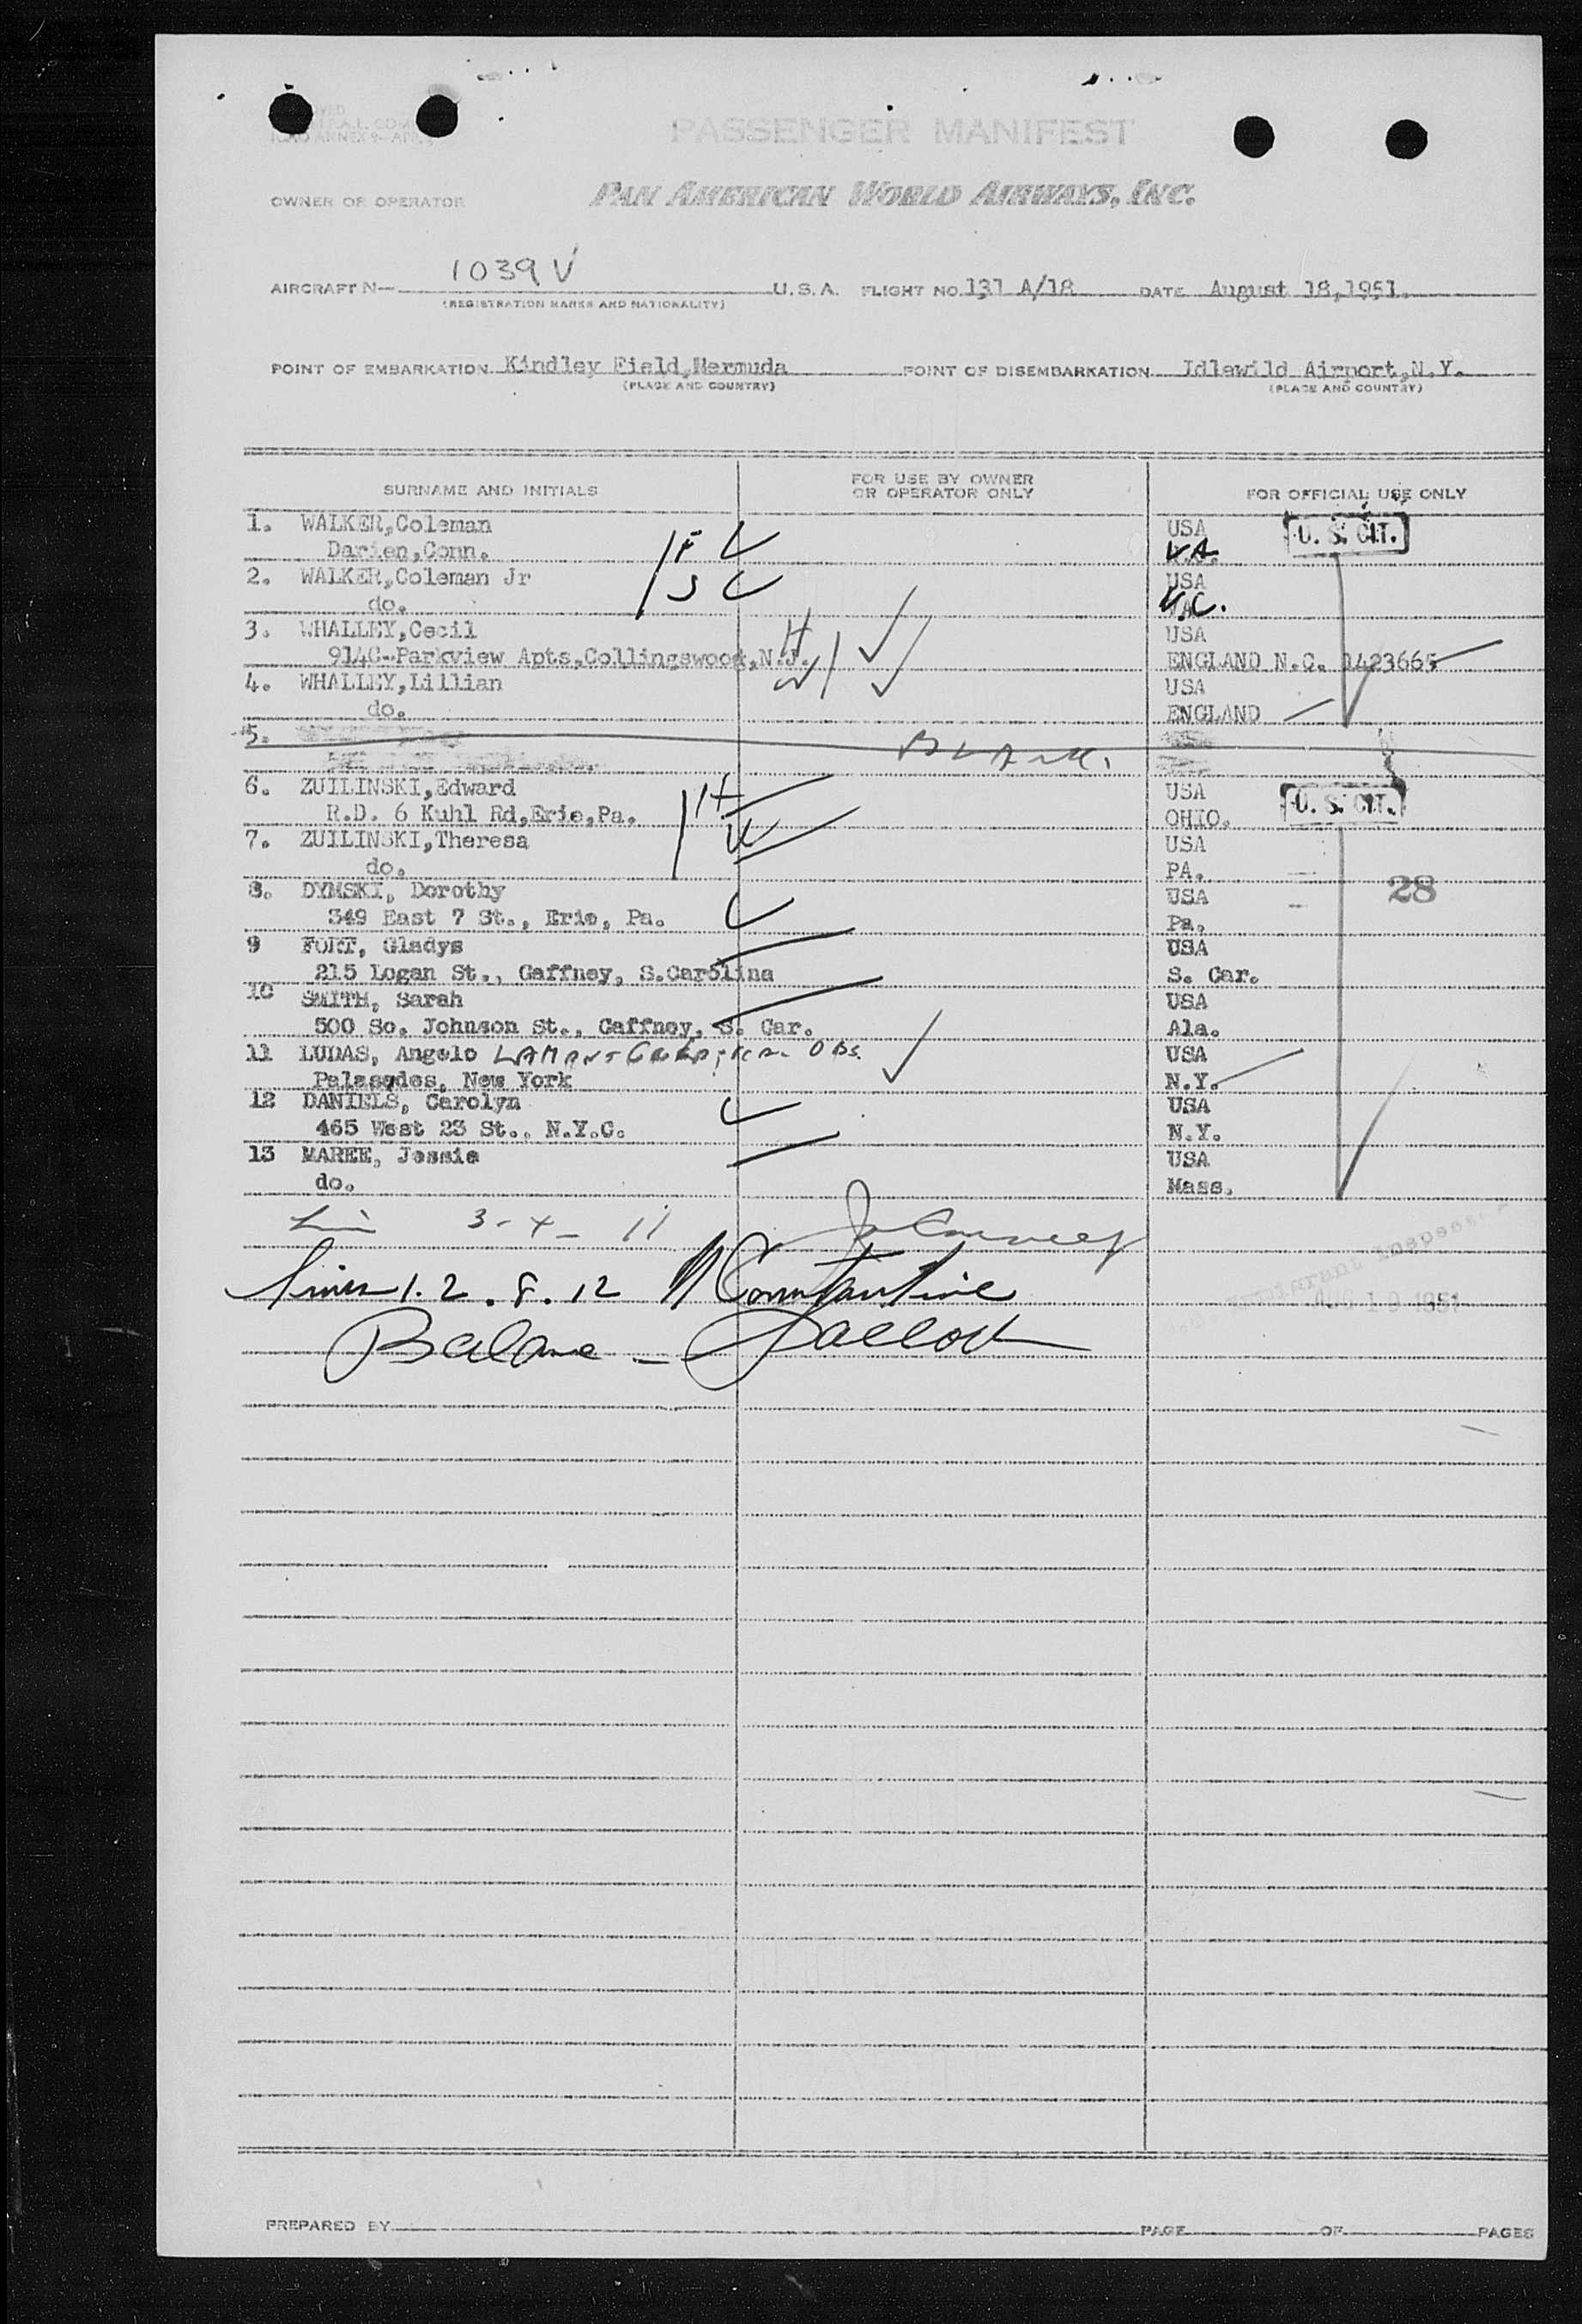 PASSENGER MANIFEST
OWNER OR OPERATOR PAN AMERICAN WORLD AIRWAYS, INC.
AIRCRAFT N— 1039V U.S.A. FLIGHT NO. 131 A/18 DATE August 18,1951.
(REGISTRATION MARKS AND NATIONALITY)
POINT OF EMBARKATION Kindley Field,Mermuda POINT OF DISEMBARKATION Idlewild Airport,N.Y.
(PLACE AND COUNTRY) (PLACE AND COUNTRY)
SURNAME AND INITIALS FOR USE BY OWNER OR OPERATOR ONLY FOR OFFICIAL USE ONLY
1. WALKER,Coleman F USA U. S. CIT.
Darien,Conn. V.A.
2. WALKER,Coleman Jr S USA
do. V.C.
3. WHALLEY,Cecil H USA
914C-Parkview Apts,Collingswood,N.J. ENGLAND N.C. 1423665
4. WHALLEY,Lillian W USA
do. ENGLAND
5. BLANK.
6. ZUILINSKI,Edward H USA U. S. CIT.
R.D. 6 Kuhl Rd,Erie,Pa. OHIO.
7. ZUILINSKI,Theresa W USA
do. PA.
8. DYMSKI, Dorothy USA 28
349 East 7 St., Erie, Pa. Pa.
9 FORT, Gladys USA
215 Logan St., Gaffney, S.Carolina S. Car.
10 SMITH, Sarah USA
500 So. Johnson St., Gaffney, S. Car. Ala.
11 LUDAS, Angelo LAMONT OBS. USA
Palasades, New York N.Y.
12 DANIELS, Carolyn USA
465 West 23 St., N.Y.C. N.Y.
13 MAREE, Jessie USA
do. Mass.
3-4-11
Immigrant Inspector
Lines 1.2.8.12 Constantine AUG 19 1951
Balance —
PREPARED BY PAGE OF PAGES